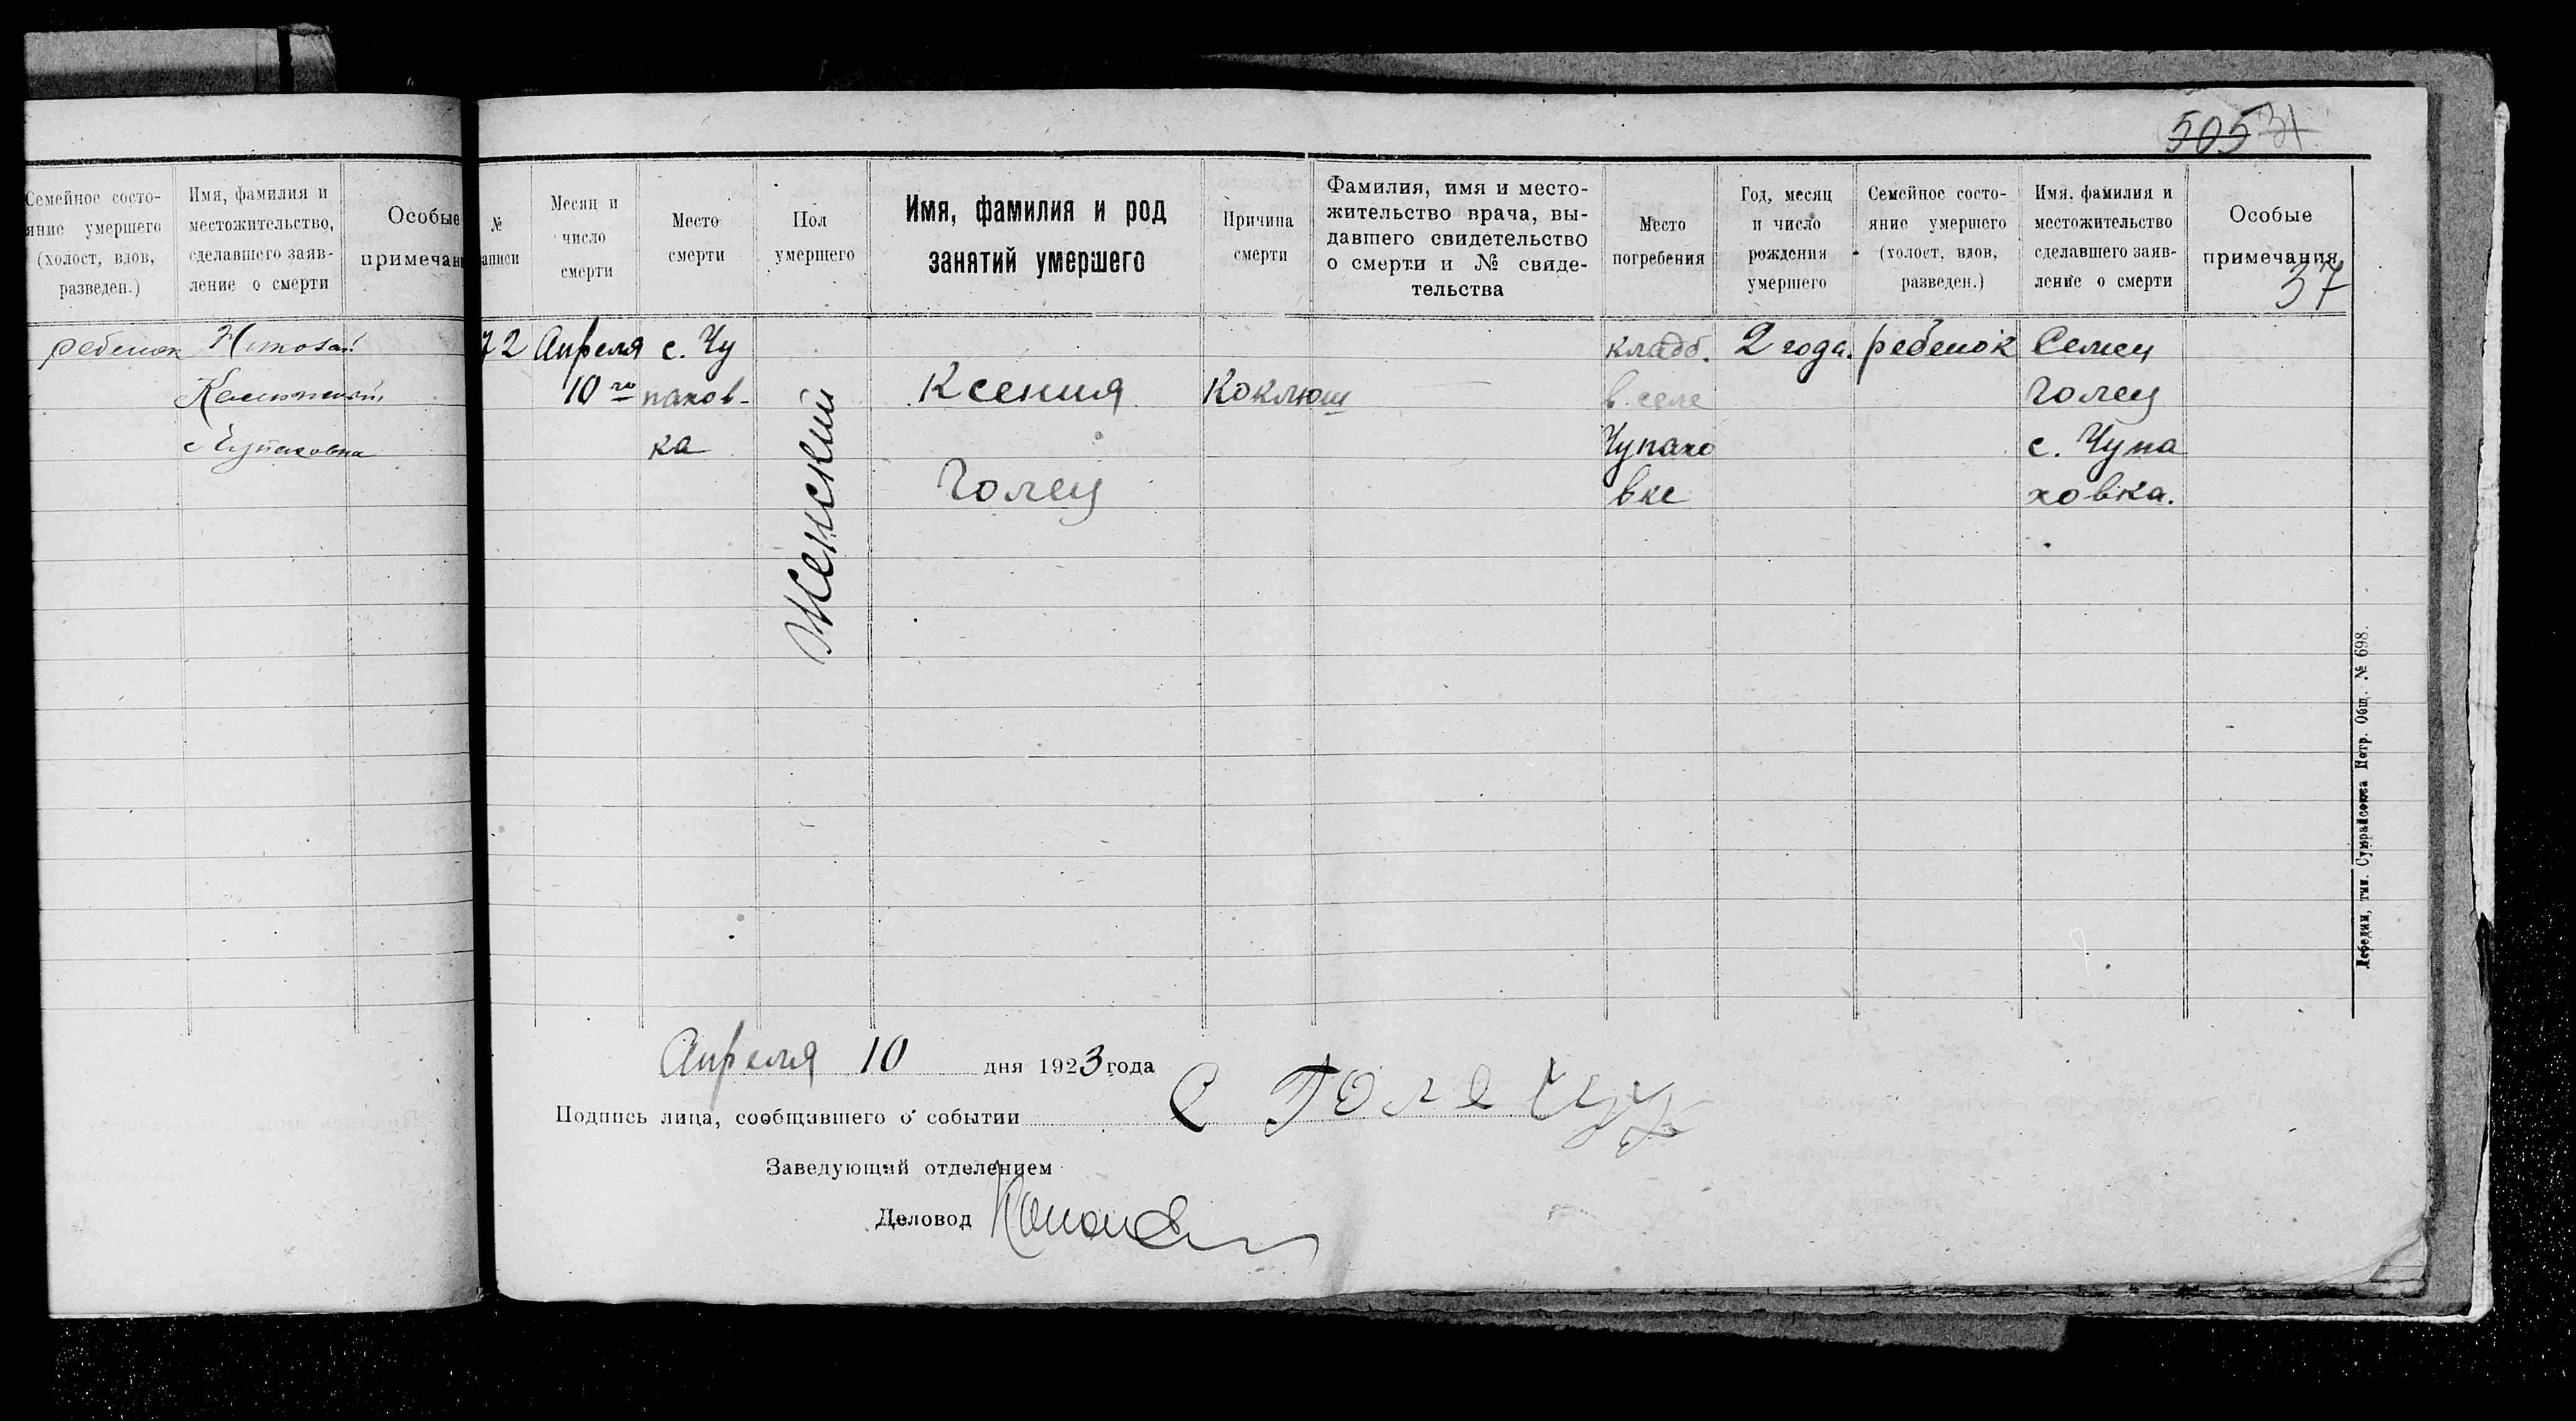 Семейное состо-
яние умершего
(холост, вдов,
разведен.)
Имя, фамилия и
местожительство,
сделавшего заяв-
ление о смерти
Особые
примечан
ребенок
с Чупаховка
505 31
№
аписи
Месяц и
число
смерти
Место
смерти
Пол
умершего
Имя, фамилия и род
занятий умершего
Причина
смерти
Фамилия, имя и место-
жительство врача, вы-
давшего свидетельство
о смерти и № свиде-
тельства
Место
погребения
Год, месяц
и число
рождения
умершего
Семейное состо-
яние умершего
(холост, вдов,
разведен.)
Имя, фамилия и
местожительство
сделавшего заяв-
ление о смерти
Особые
примечания
37
72
Апреля
10го
с. Чу
пахов-
ка
Женский
Ксения
Голец
Коклюш
кладб.
в селе
Чупахо
вке
2 года.
ребенок
Семен
Голец
с. Чупа
ховка.
Апреля 10 дня 1923 года
Подпись лица, сообщившего о событии С Голец
Заведующий отделением
Деловод
Лебедин, тип. Сумрайсоюза Потр. Общ. № 698.